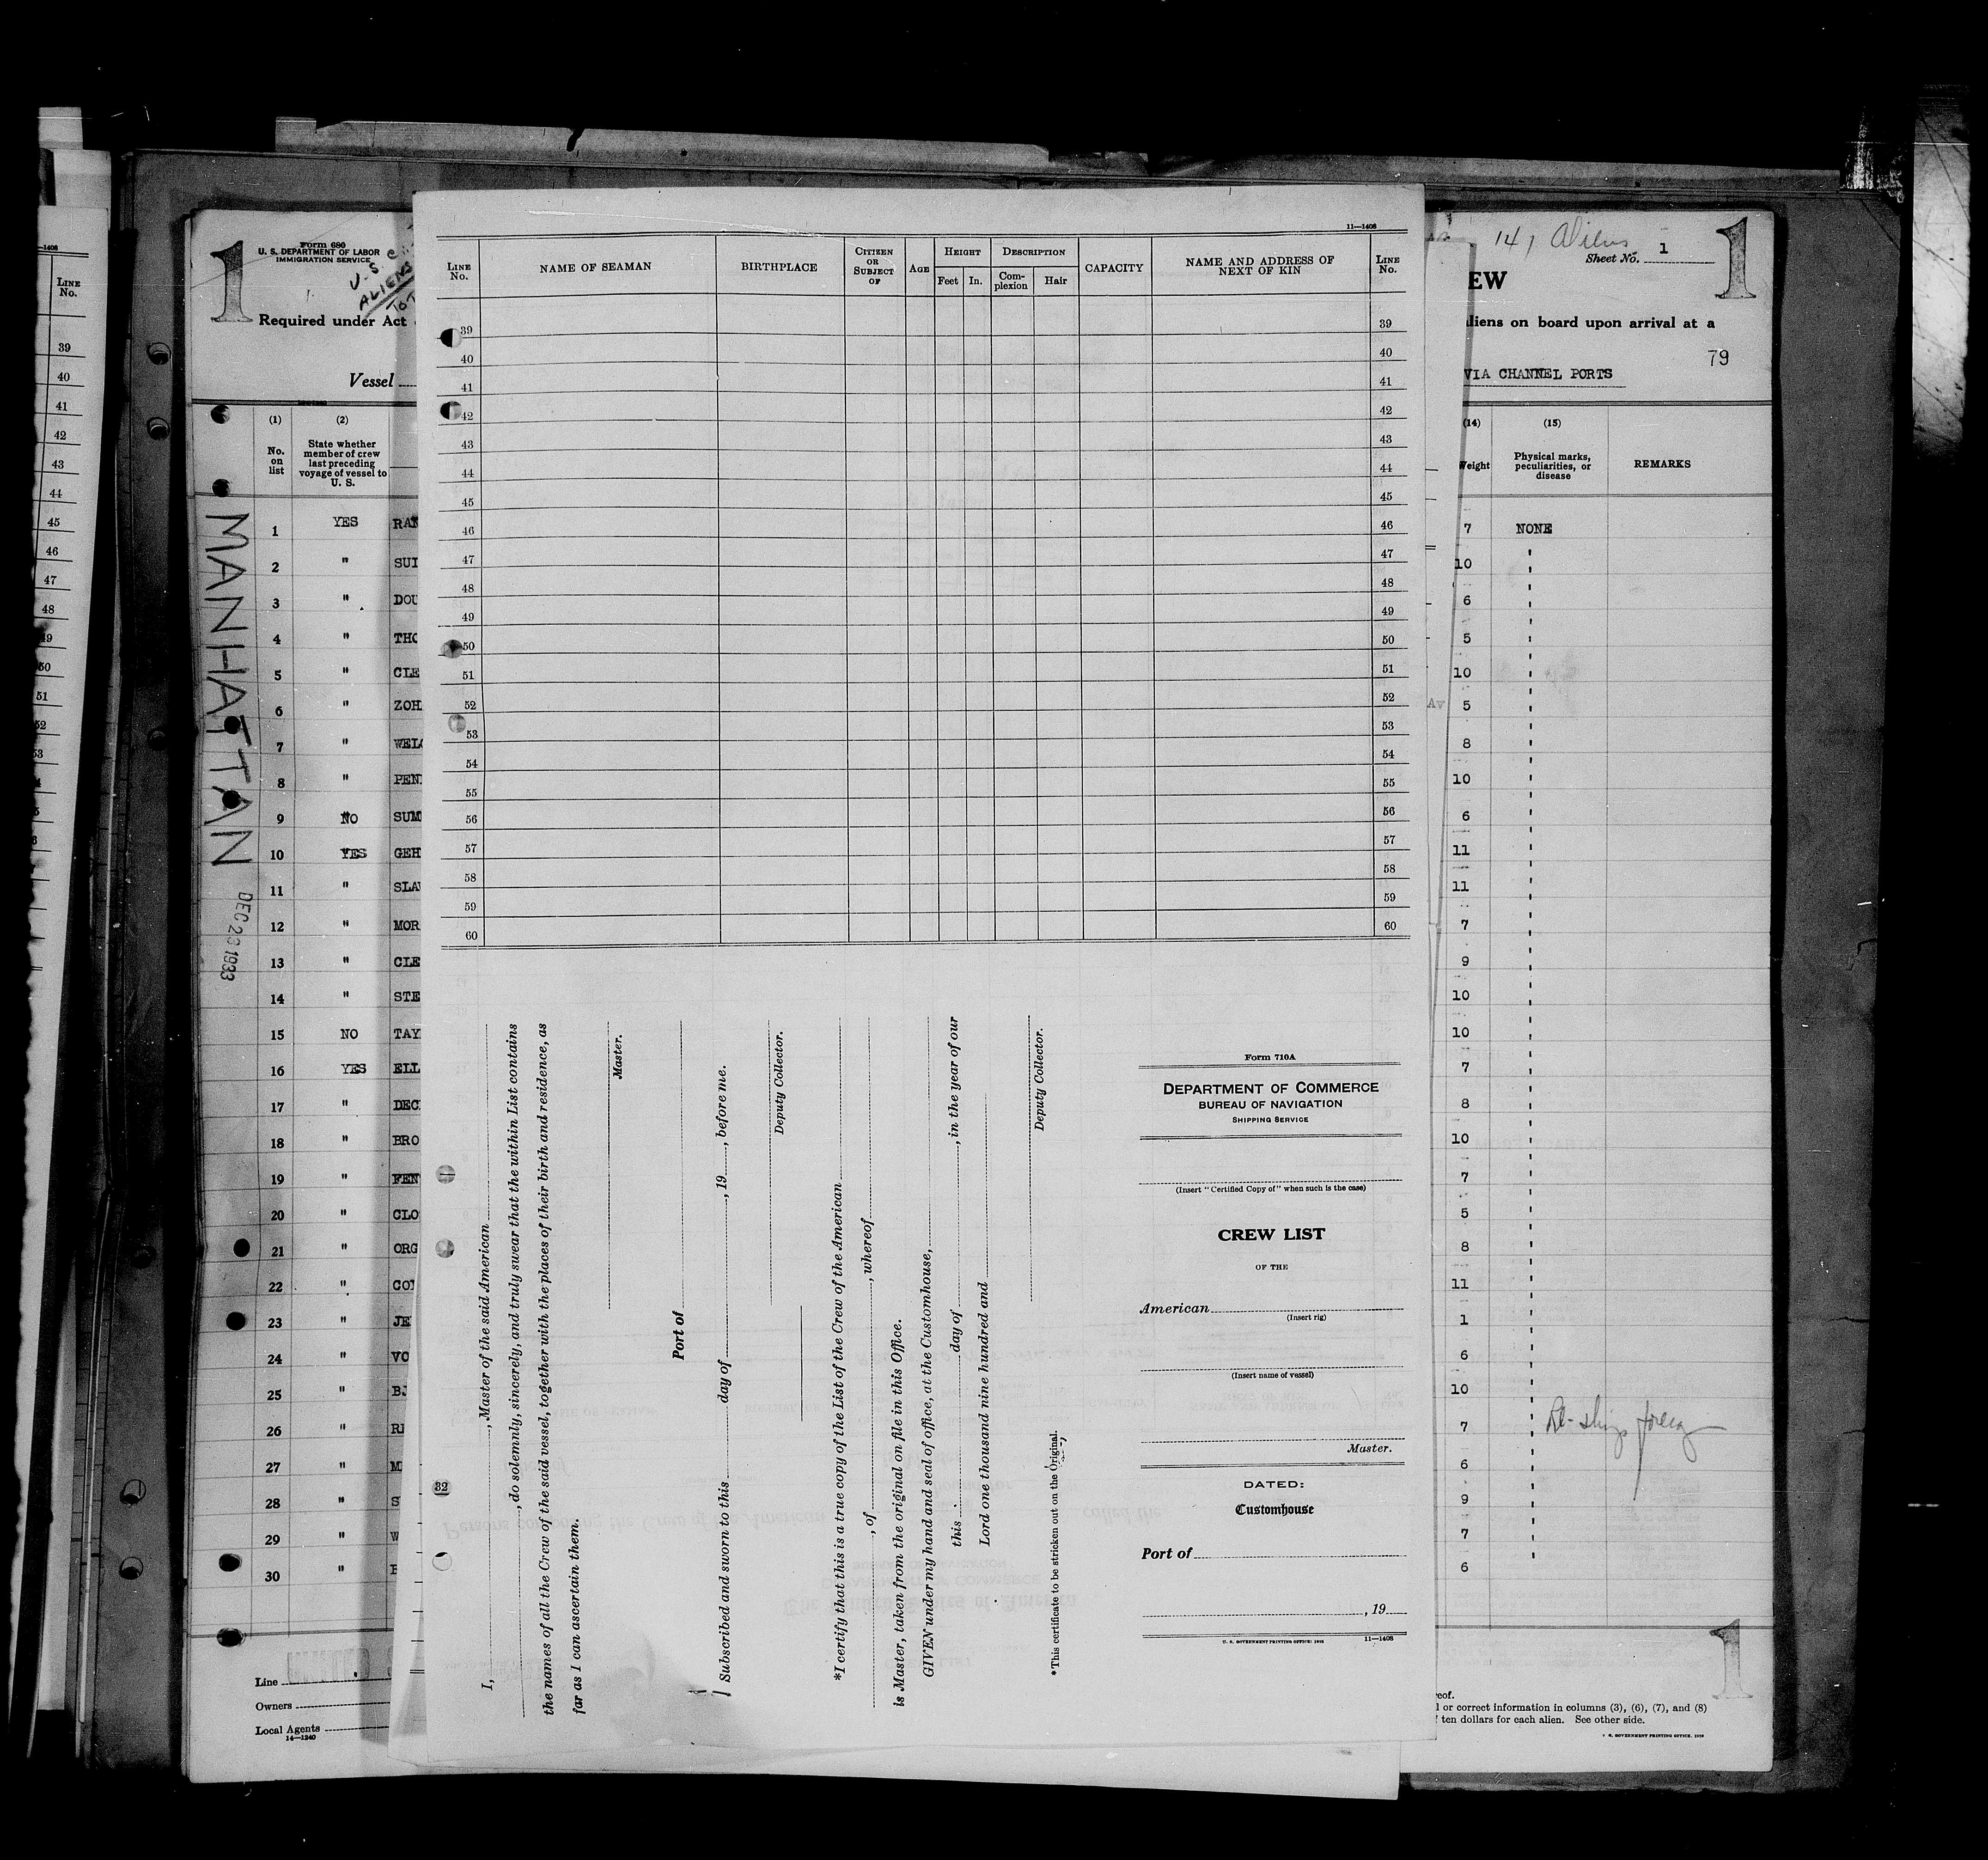 —1408
LINE No.
39
40
41
42
43
44
45
46
47
48
49
50
51
52
53
1
Form 680
U. S. DEPARTMENT OF LABOR
IMMIGRATION SERVICE
U.S.
ALIENS
TOT
Required under Act
Vessel
(1) (2)
No. on list
State whether member of crew last preceding voyage of vessel to U. S.
MANHATTAN
DEC 28 1933
1 YES RAN
2 " SUI
3 " DOU
4 " THO
5 " CLE
6 " ZOH
7 " WEL
8 " PEN
9 NO SUM
10 YES GEH
11 " SLA
12 " MOR
13 " CLE
14 " STE
15 NO TAY
16 YES ELL
17 " DEC
18 " BRO
19 " FEN
20 " CLO
21 " ORG
22 " CO
23 " JE
24 " VO
25 " BJ
26 " RI
27 " M
28 " S
29 " W
30 "
Line
Owners
Local Agents
14—1240
11—1408
LINE No. NAME OF SEAMAN BIRTHPLACE CITIZEN OR SUBJECT OF AGE HEIGHT Feet In. DESCRIPTION Complexion Hair CAPACITY NAME AND ADDRESS OF NEXT OF KIN LINE No.
39 39
40 40
41 41
42 42
43 43
44 44
45 45
46 46
47 47
48 48
49 49
50 50
51 51
52 52
53 53
54 54
55 55
56 56
57 57
58 58
59 59
60 60
I, , Master of the said American
, do solemnly, sincerely, and truly swear that the within List contains
the names of all the Crew of the said vessel, together with the places of their birth and residence, as
far as I can ascertain them.
Master.
Port of
Subscribed and sworn to this day of , 19 , before me.
Deputy Collector.
*I certify that this is a true copy of the List of the Crew of the American
, of , whereof
is Master, taken from the original on file in this Office.
GIVEN under my hand and seal of office, at the Customhouse,
this day of , in the year of our
Lord one thousand nine hundred and
Deputy Collector.
*This certificate to be stricken out on the Original.
32
Form 710A
DEPARTMENT OF COMMERCE
BUREAU OF NAVIGATION
SHIPPING SERVICE
(Insert "Certified Copy of" when such is the case)
CREW LIST
OF THE
American
(Insert rig)
(Insert name of vessel)
Master.
DATED:
Customhouse
Port of
, 19
U. S. GOVERNMENT PRINTING OFFICE: 1932 11—1408
147 Aliens
Sheet No. 1
1
EW
liens on board upon arrival at a
79
VIA CHANNEL PORTS
(14) (15)
Weight
Physical marks, peculiarities, or disease
REMARKS
7 NONE
10 "
6 "
5 "
10 "
5 "
8 "
10 "
6 "
11 "
11 "
7 "
9 "
10 "
10 "
7 "
8 "
10 "
7 "
5 "
8 "
11 "
1 "
6 "
10 "
7 " Re-ship foreign
6 "
9 "
7 "
6 "
1
reof.
l or correct information in columns (3), (6), (7), and (8)
ten dollars for each alien. See other side.